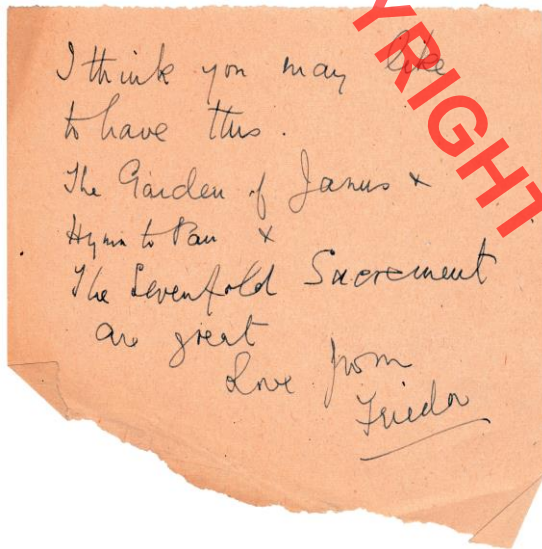 I think you may like
to have this.
The Garden of Janus +
Hymn to Pan +
The Sevenfold Sacrament
are great
Love from
Frieda
YRIGHT